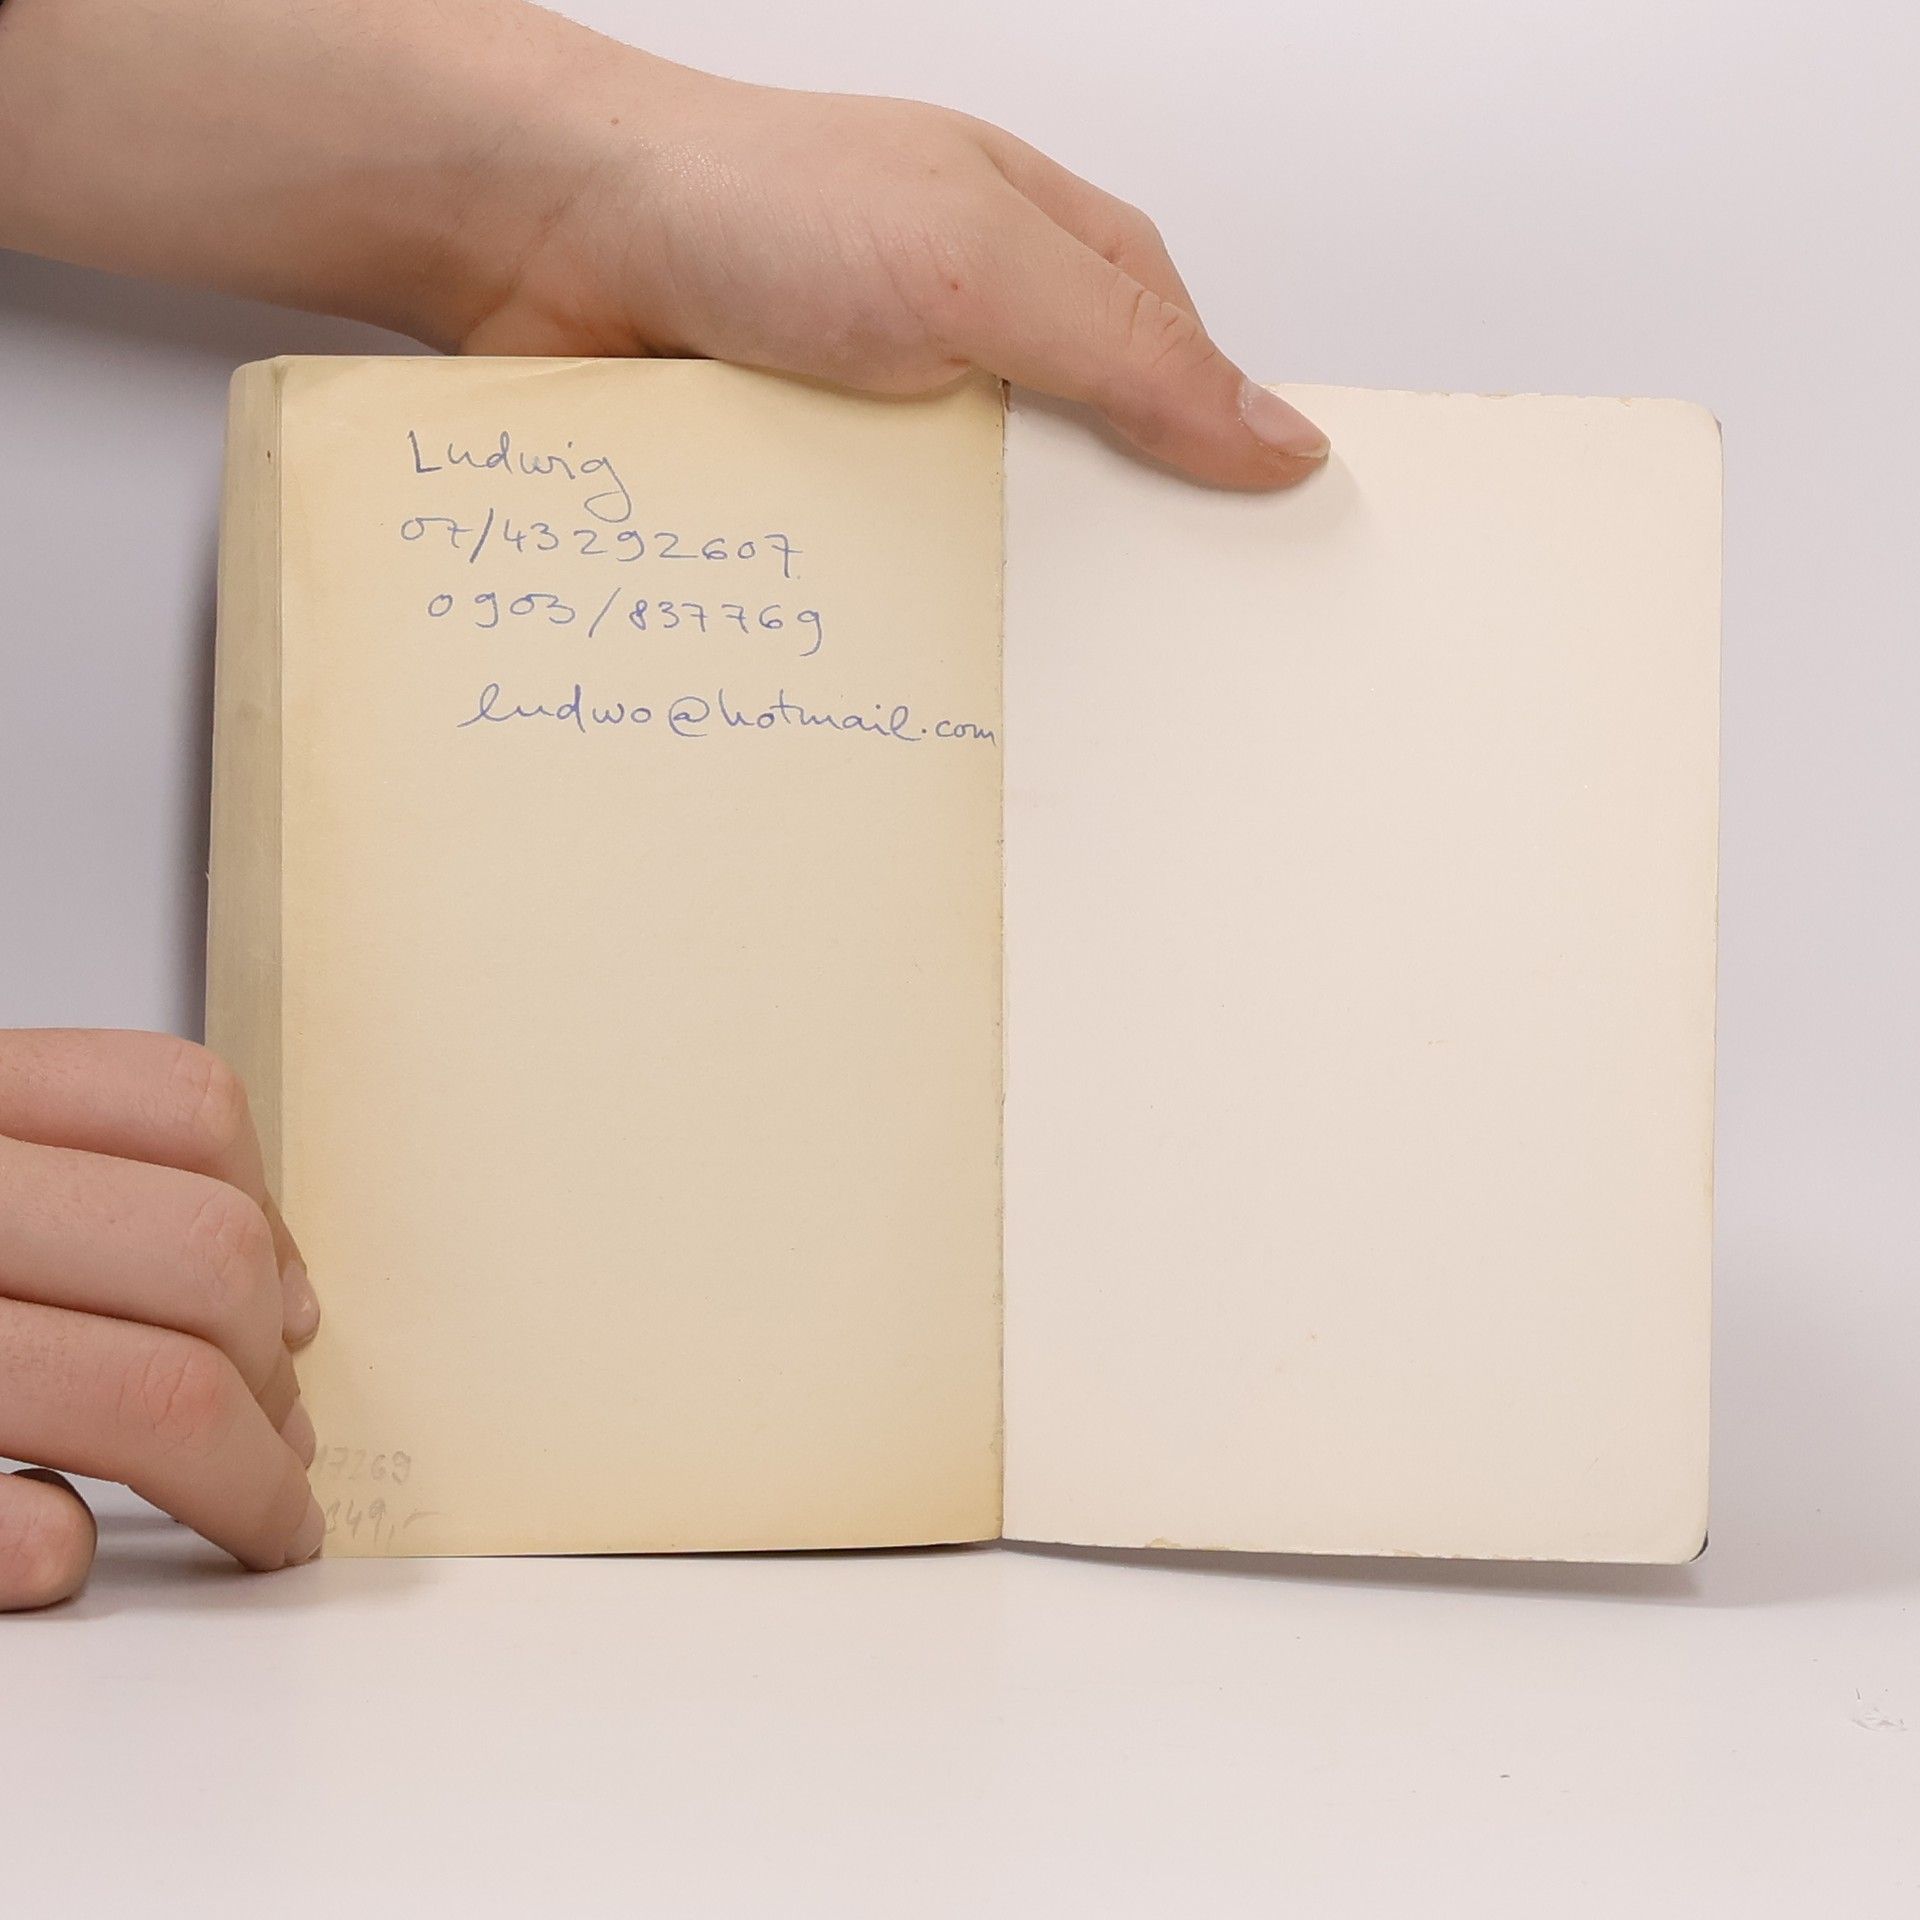 Ludwig
07/43292607
0903/837769
ludwo@hotmail.com
17269
349,-